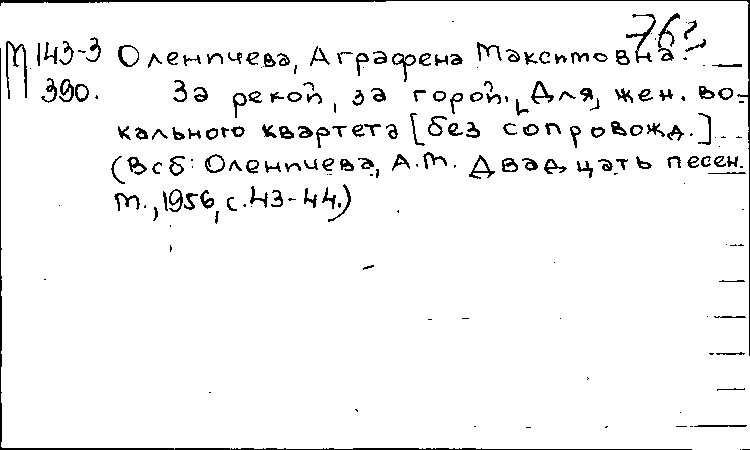 76г.
М 143-3 Оленичева, Аграфена Максимовна.
390. За рекой, за горой. [Для] жен. во-
кального квартета [без сопровожд.]
(В сб: Оленичева, А.М. Двадцать песен.
М., 1956, с. 43-44.)